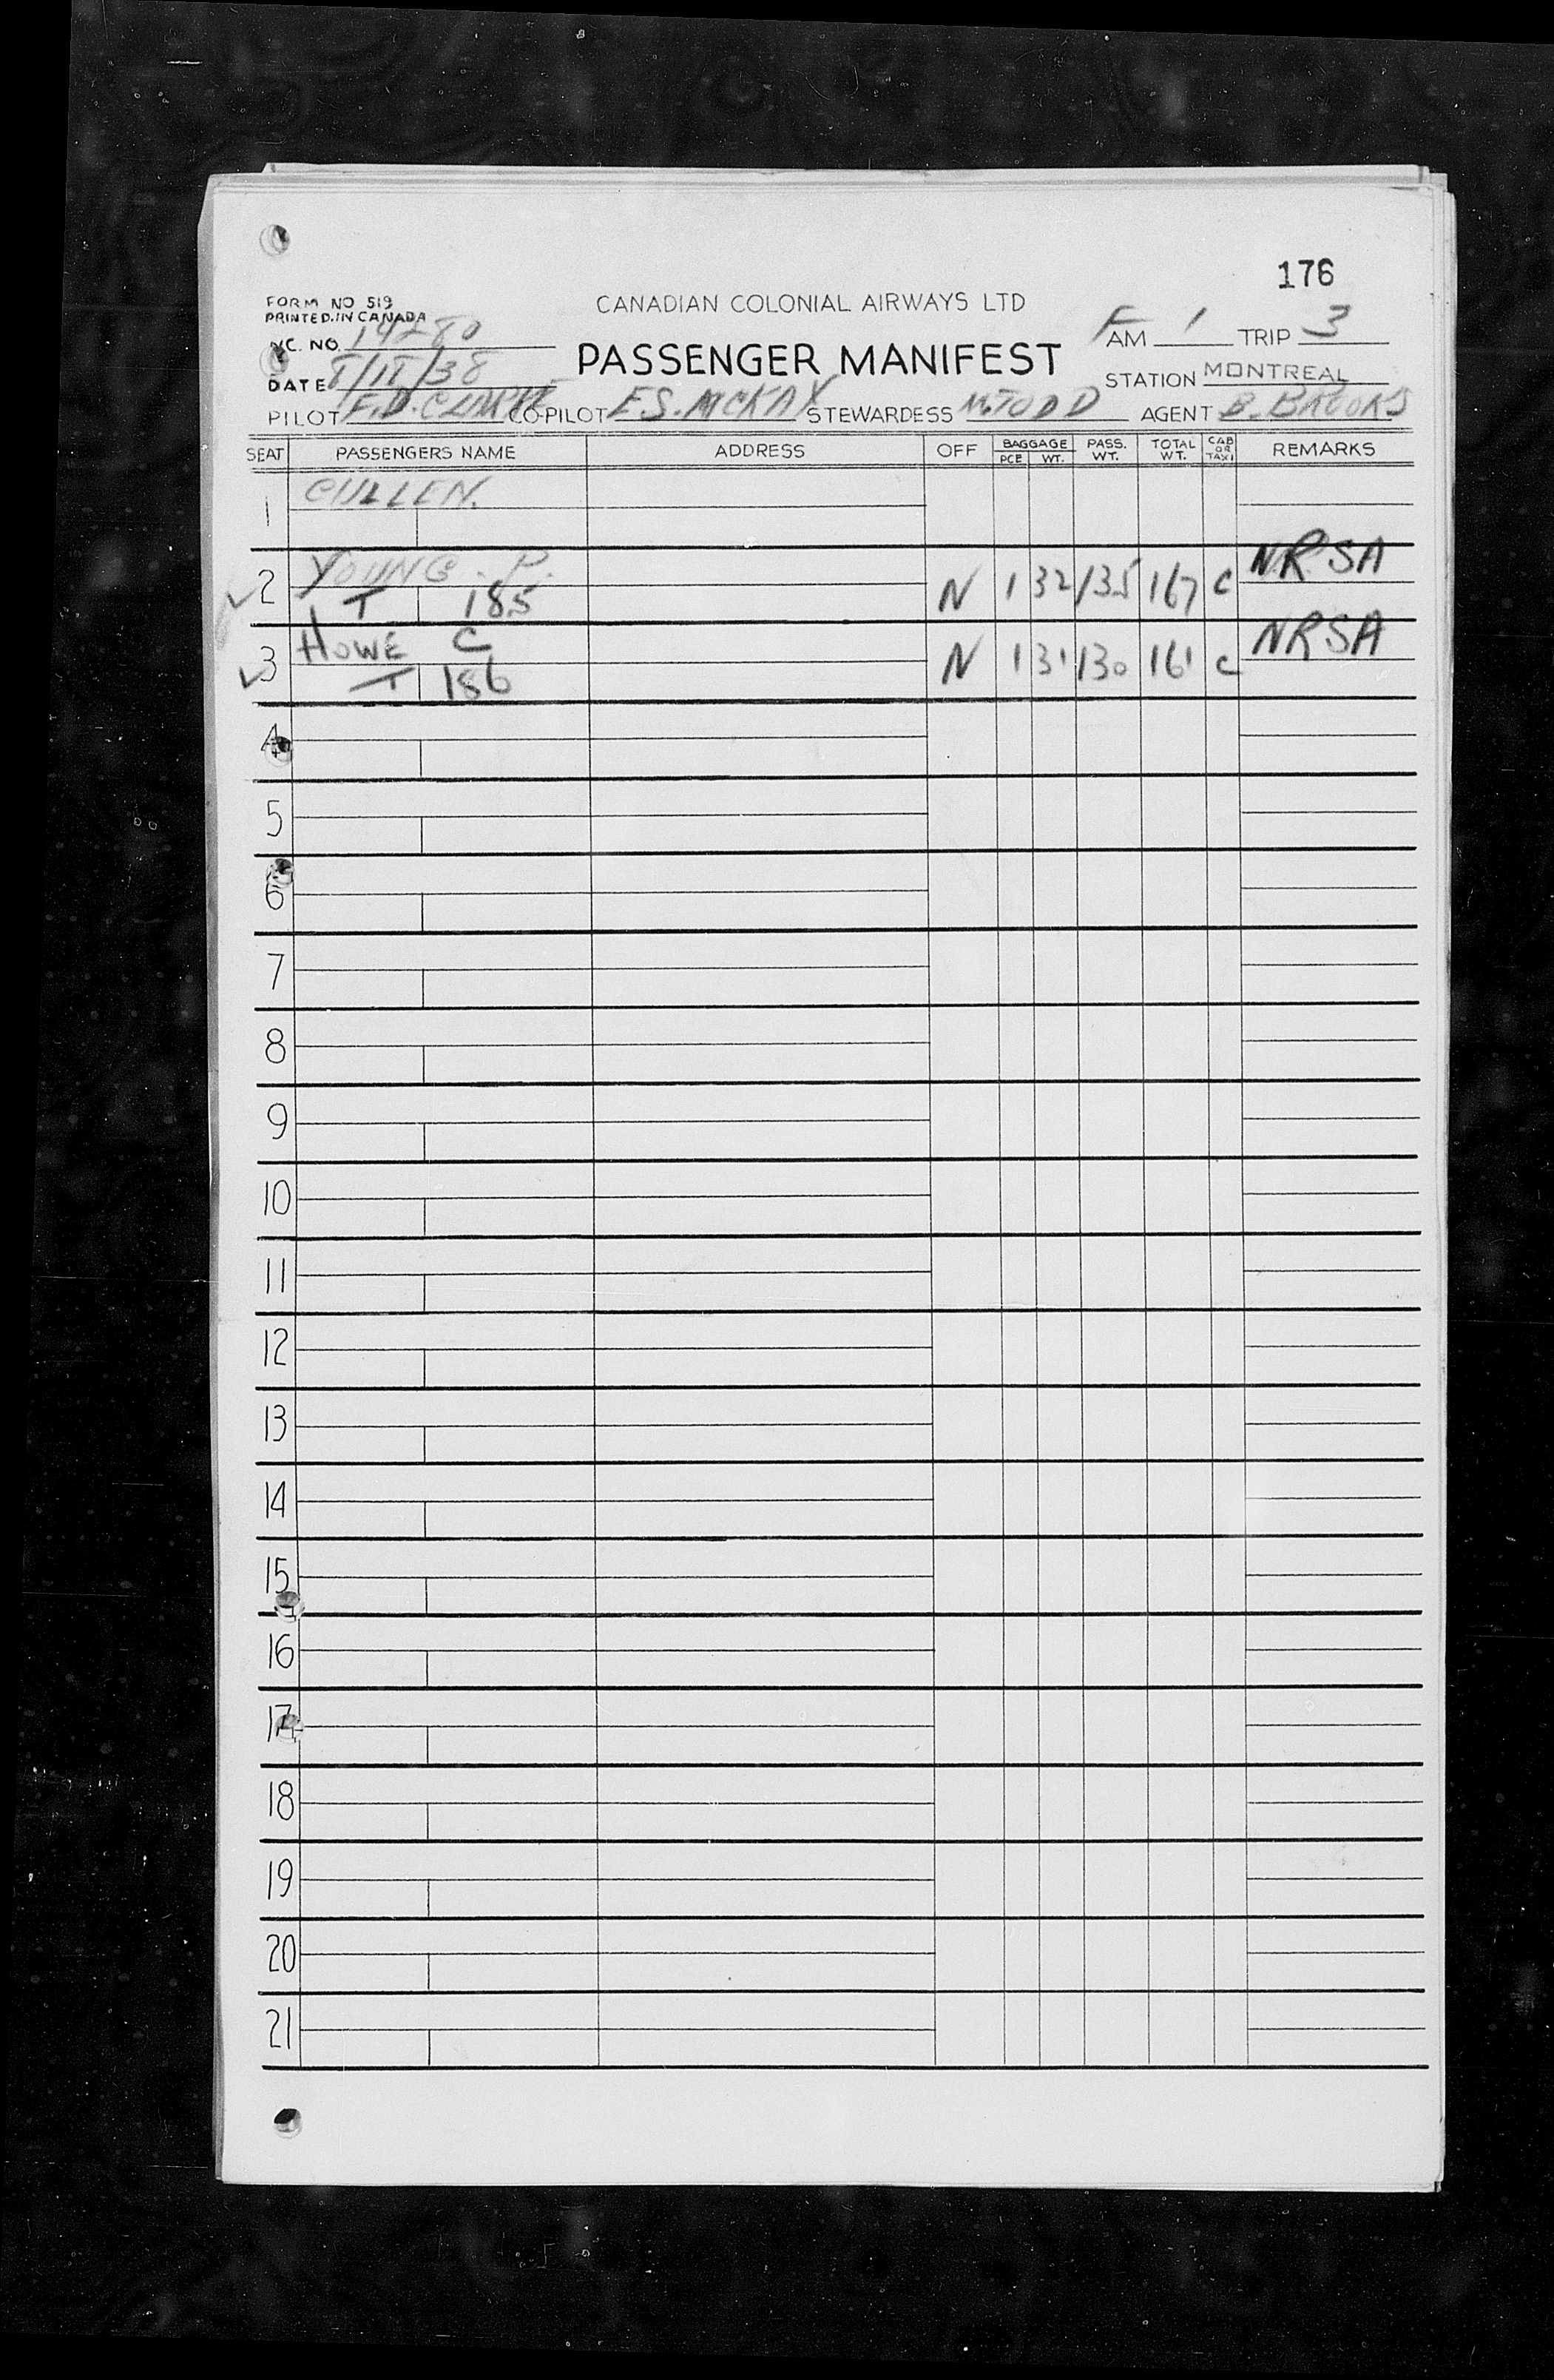 176
FORM NO 519
PRINTED IN CANADA
CANADIAN COLONIAL AIRWAYS LTD
N.C. NO. 14280
PASSENGER MANIFEST
F AM 1 TRIP 3
DATE 8/11/38
STATION MONTREAL
PILOT F.D. CLARKE CO-PILOT E.S. MCKAY STEWARDESS M. TODD AGENT B. BROOKS
SEAT PASSENGERS NAME ADDRESS OFF BAGGAGE PCE WT. PASS. WT. TOTAL WT. CAB OR TAXI REMARKS
1 CULLEN.
2 YOUNG. P. N 1 32 135 167 C NRSA
T 185
3 HOWE C N 1 31 130 161 C NRSA
T 186
4
5
6
7
8
9
10
11
12
13
14
15
16
17
18
19
20
21